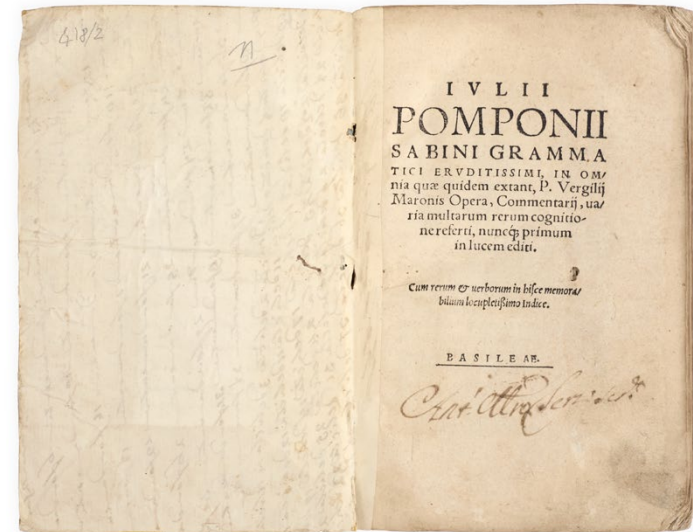 418/2
n
IVLII
POMPONII
SABINI GRAMMA
TICI ERVDITISSIMI, IN OM/
nia quæ quidem extant, P. Vergilij
Maronis Opera, Commentarij, ua/
ria multarum rerum cognitio-
ne referti, nuncq́; primum
in lucem editi.
Cum rerum & uerborum in hisce memora/
bilium locupletißimo Indice.
BASILEAE.